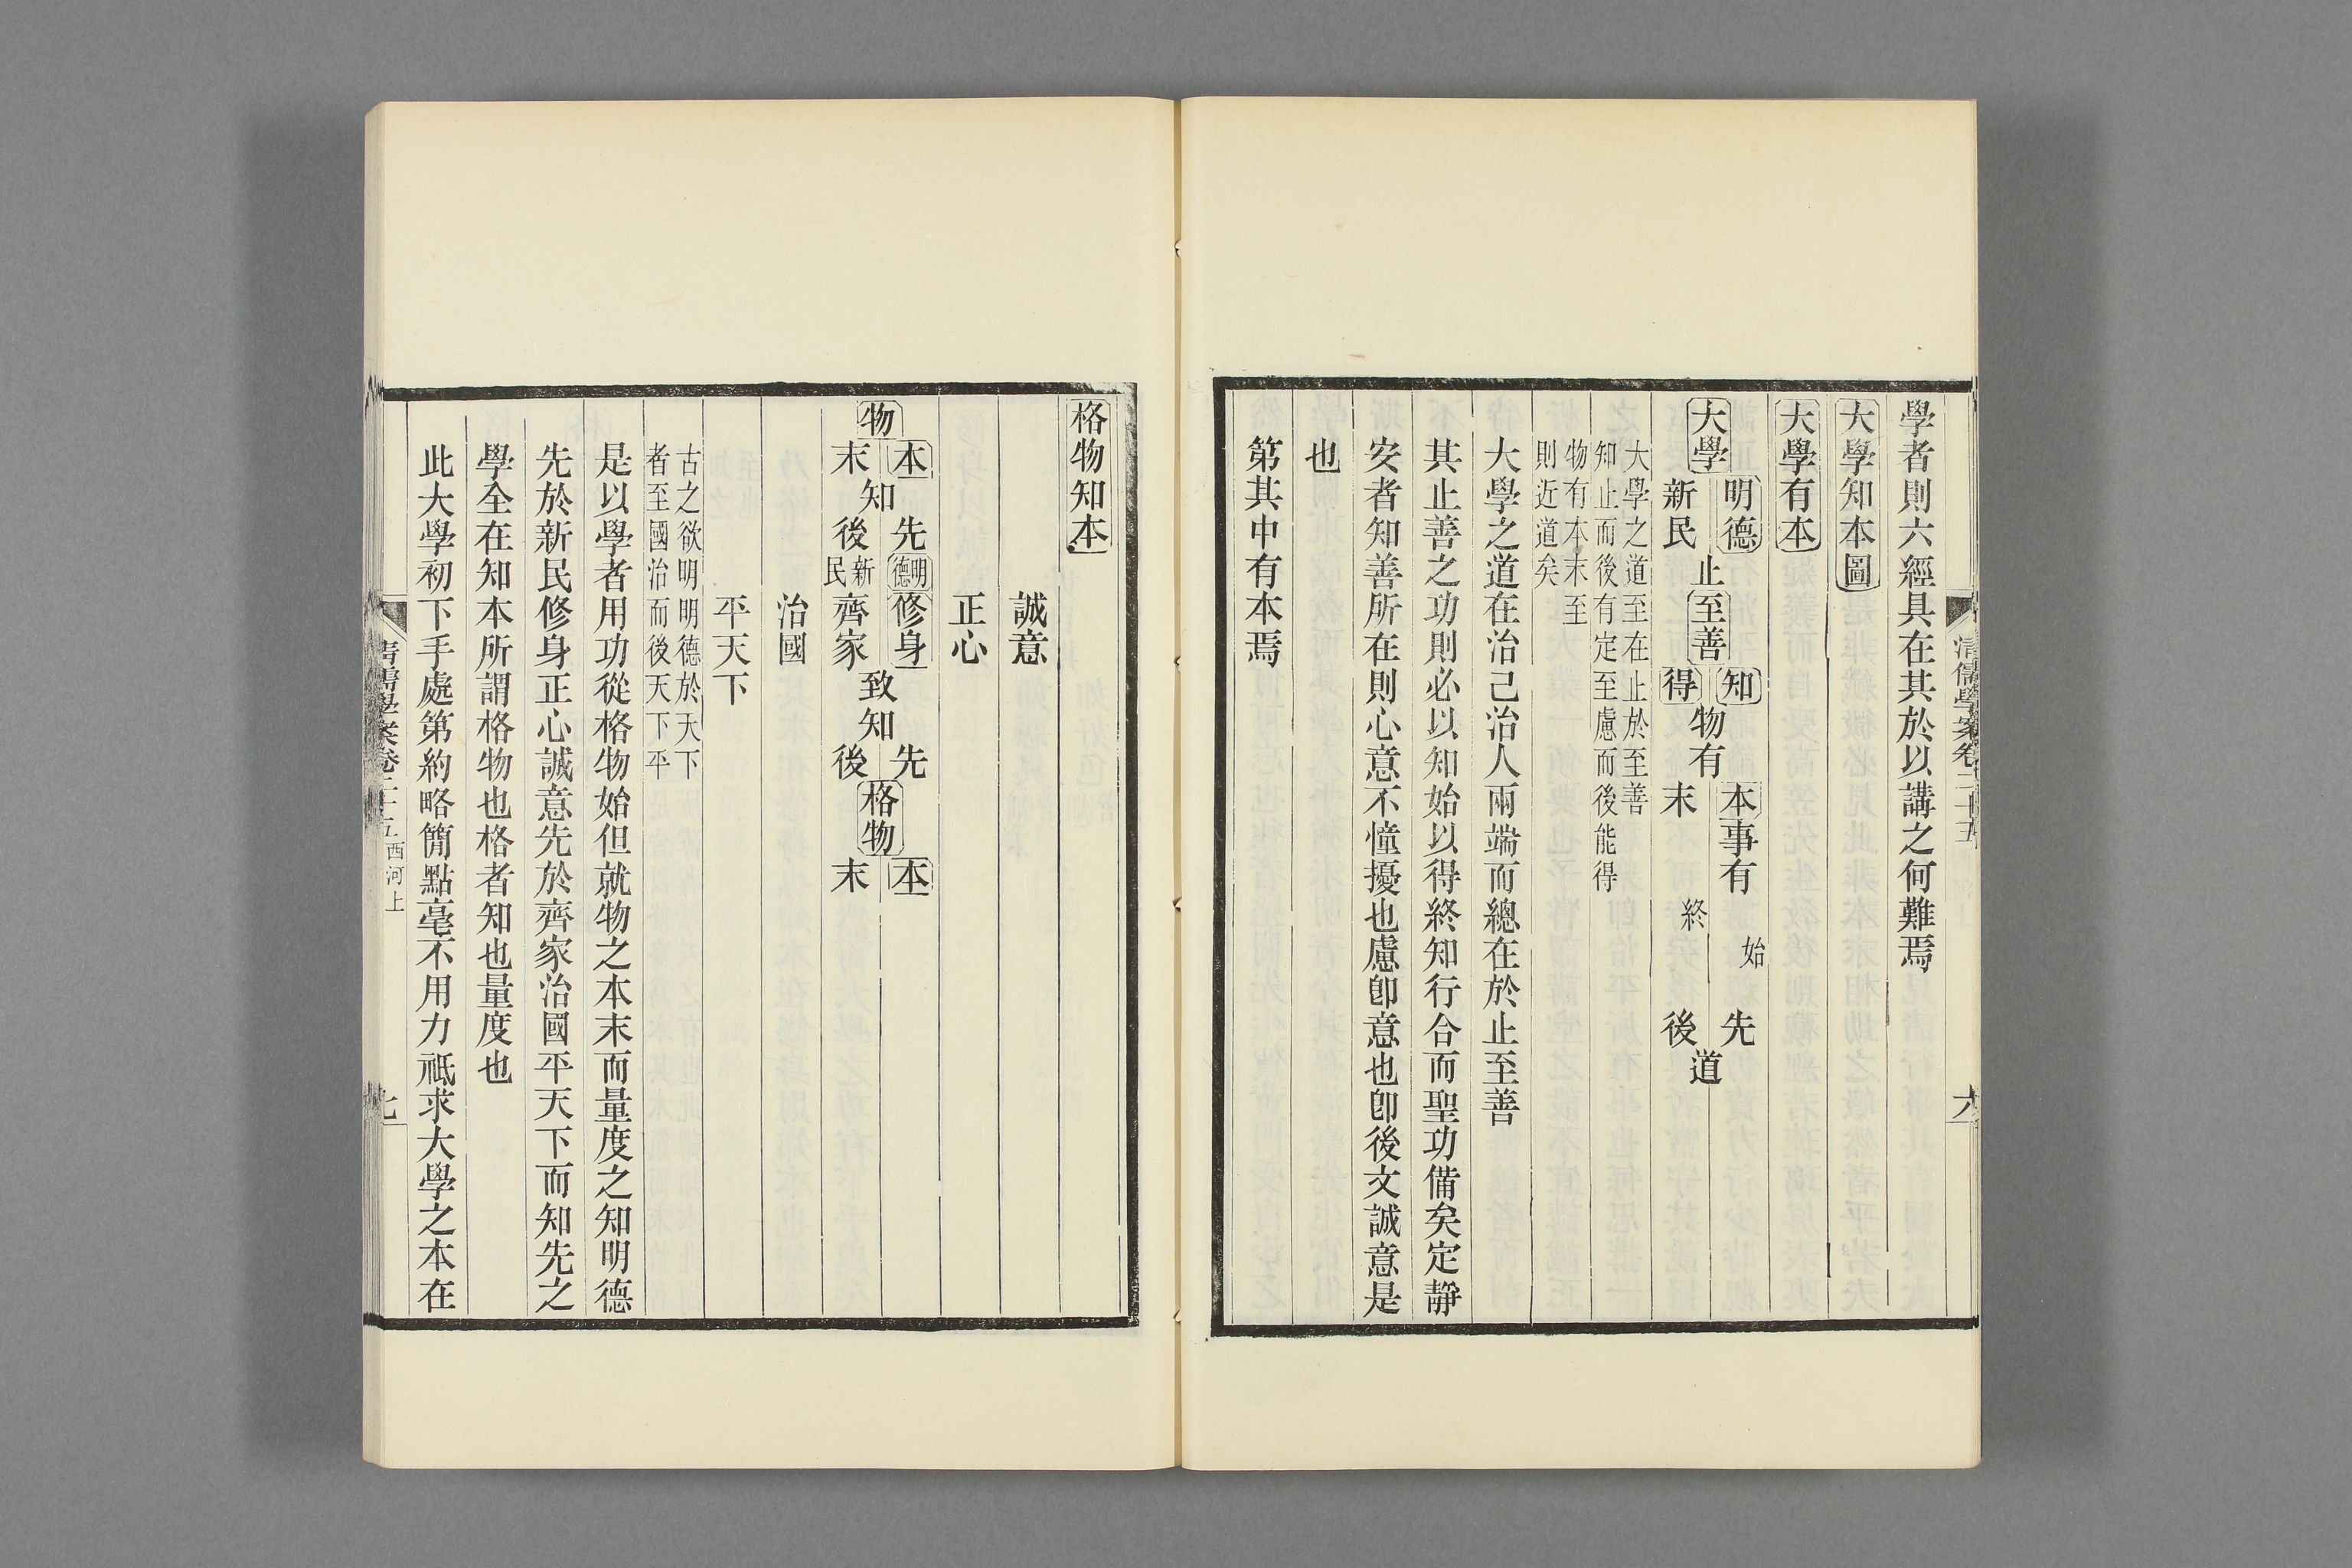 清儒學案卷二十五
六
學者則六經具在其於以講之何難焉
大學知本圖
大學有本
大學
明德
新民
止
至善
知
得
物有
本
末
事有
始
終
先
後
道
大學之道至在止於至善
知止而後有定至慮而後能得
物有本末至
則近道矣
大學之道在治己治人兩端而總在於止至善
其止善之功則必以知始以得終知行合而聖功備矣定靜
安者知善所在則心意不憧擾也慮卽意也卽後文誠意是
也
第其中有本焉
格物知本
誠意
正心
物
本
末
知
先
後
明德
新民
修身
齊家
致知
先
後
格物
本
末
治國
平天下
古之欲明明德於天下
者至國治而後天下平
是以學者用功從格物始但就物之本末而量度之知明德
先於新民修身正心誠意先於齊家治國平天下而知先之
學全在知本所謂格物也格者知也量度也
此大學初下手處第約略簡點毫不用力祗求大學之本在
清儒學案卷二十五 西河上
七